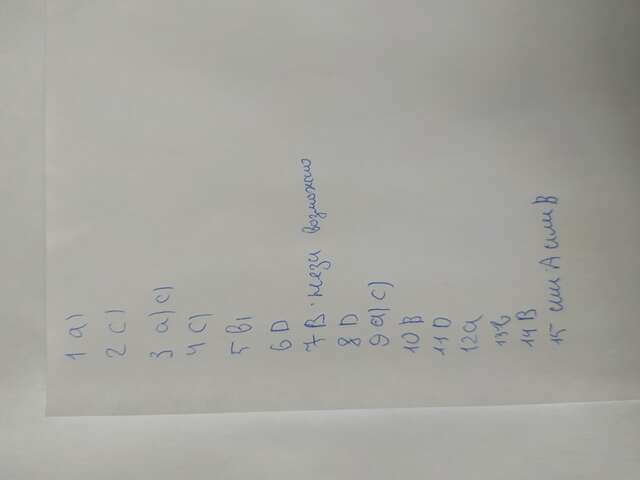 1 а)
2 с)
3 а) с)
4 с)
5 в)
6 D
7 В. возможно
8 D
9 а) с)
10 В
11 D
12 а
13 в
14 В
15 или А или В